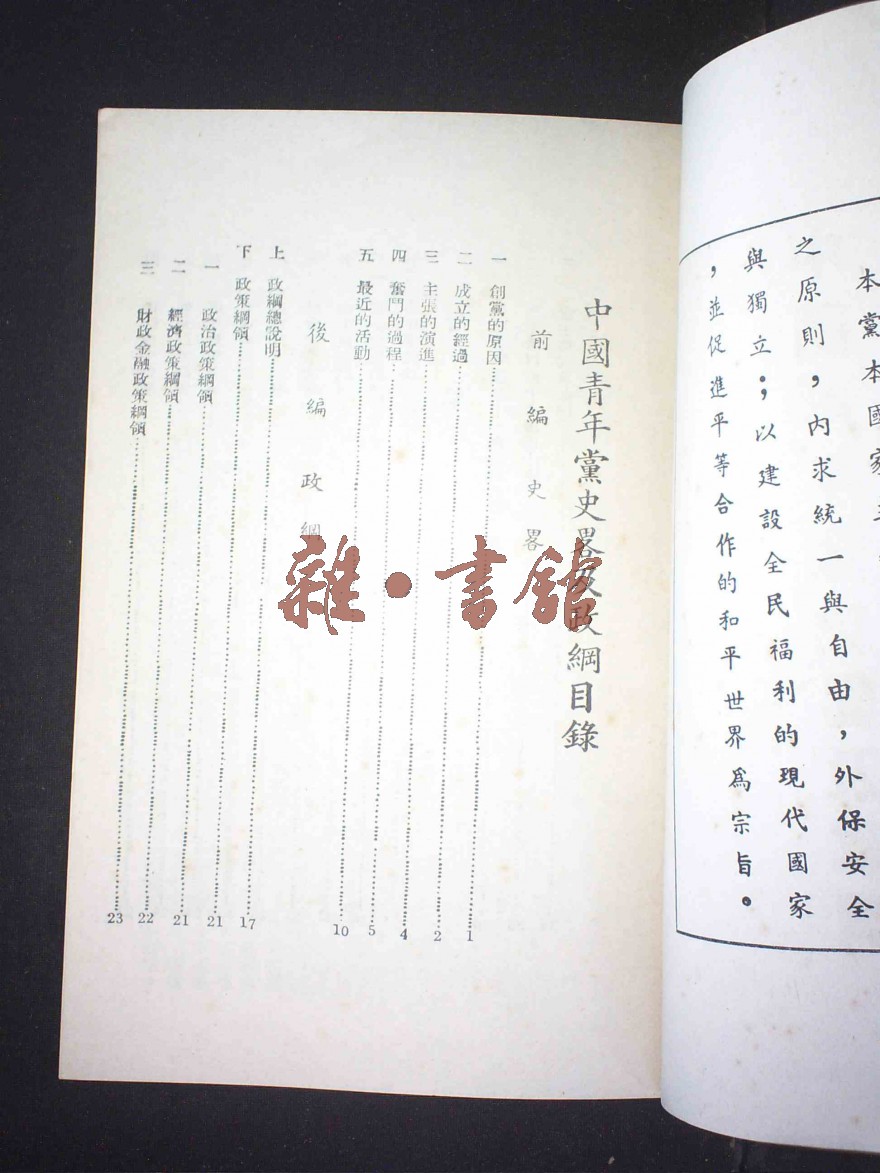 本黨本國家
之原則，內求統一與自由，外保安全
與獨立；以建設全民福利的現代國家
，並促進平等合作的和平世界爲宗旨。
中國青年黨史畧及政綱目錄
前編 史畧
一 創黨的原因……1
二 成立的經過……2
三 主張的演進……4
四 奮鬥的過程……5
五 最近的活動……10
後編 政綱
上 政綱總說明……17
下 政策綱領……21
一 政治政策綱領……21
二 經濟政策綱領……22
三 財政金融政策綱領……23
雜·書館